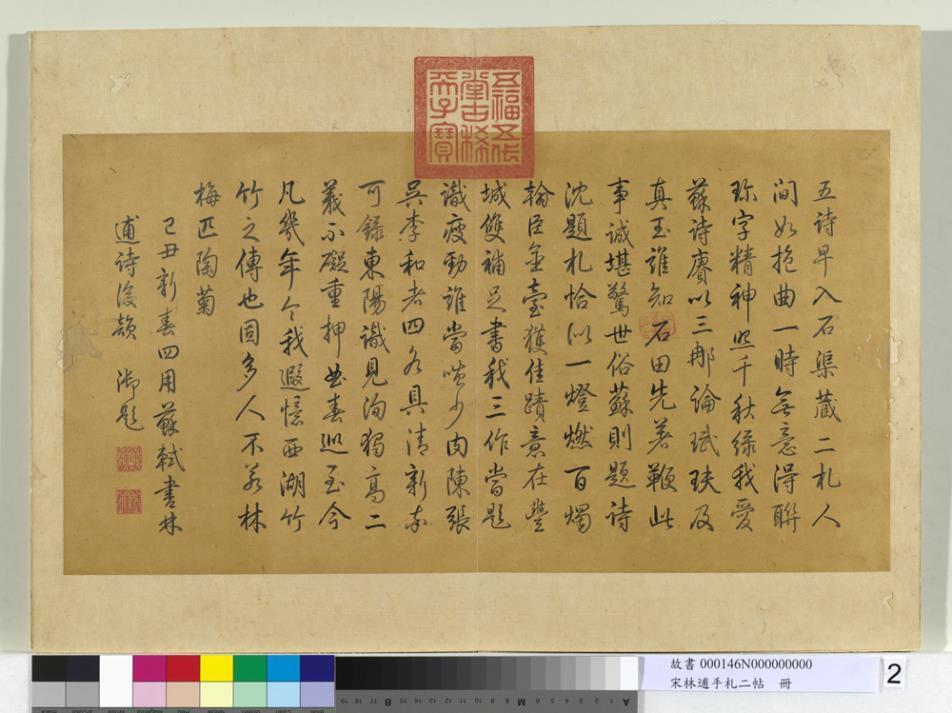 五福五代
堂古稀
天子寶
五詩早入石渠藏二札人
間如抱曲一時無意得聯
珎字精神照千秋緣我愛
蘇詩賡以三那論珷玞及
真玉誰知石田先著鞭此
事誠堪驚世俗蘇則題詩
沈題札恰似一燈燃百燭
翰臣金臺獲佳蹟意在豐
城雙補足書我三作當題
識瘦勁誰當嗤少肉陳張
吳李和者四各具清新亦
可錄東陽識見洵獨高二
義不礙重押曲春巡至今
凡幾年今我遐憶西湖竹
竹之傳也固多人不若林
梅匹陶菊
己丑新春四用蘇軾書林
逋詩後韻 御題
故書 000146N000000000
宋林逋手札二帖 冊
2